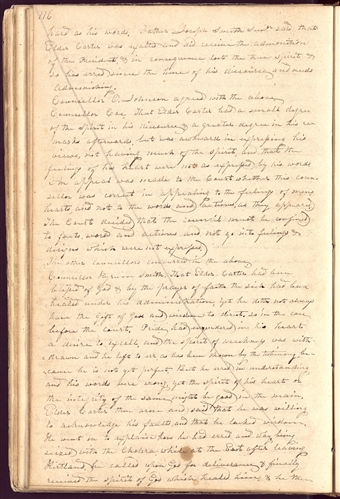 116
hard as his words. Father Joseph Smith Senr. said that
Elder Carter was exalted and did receive the admonition
of the President, & in consequence lost the true spirit &
so has erred since the time of his discourse and needs
admonishing.
Councellor O. Johnson agreed with the above.
Councellor Coe, That Elder Carter had a small degree
of the spirit in his discourse, & a greater degree in his re
marks afterwards, but was awkward in expressing his
views, not having much of the spirit, and that the
feelings of his heart were not as expressed by his words
An appeal was made to the Court whether this coun
sellor was correct in appealing to the feelings of mens
hearts, and not to the words and actions, as they appeared.
The Court decided that the council must be confined
to facts, words and actions and not go into feelings &
designs which were not expressed.
The other councellors concurred in the above.
Councellor Hyrum Smith, That Elder Carter had been
blessed of God & by the prayer of faith the sick had been
healed under his administration, yet he does not always
have the Gift of God and wisdom to direct, so in the case
before the court, Pride, had engendered in his heart
a desire to excell, and the spirit of meekness was with-
drawn and he left to err as has been shown by the testimony be-
cause he is not yet perfect. But he erred in understanding
and his words were wrong, yet the spirit of his heart or
the integrity of the same, might be good in the main.
Elder Carter then arose and said that he was willing
to acknowledge his faults, and that he lacked wisdom.
He went on to explain how he had erred and why, being
seized with the Cholera while at the East after leaving
Kirtland, he called upon God for deliverance & finally
received the spirit of God which healed him, & he then